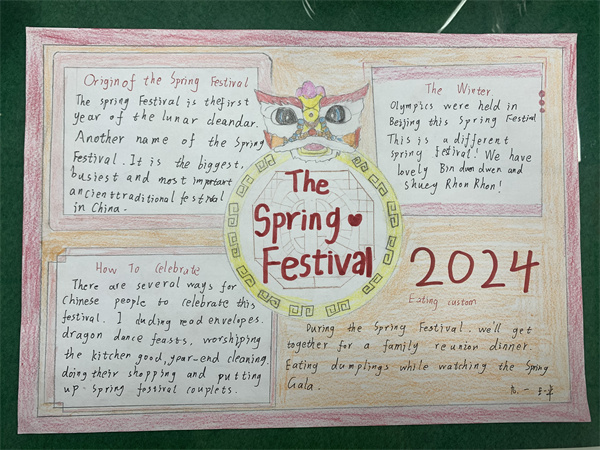 Origin of the Spring Festival
The spring Festival is thefirst
year of the lunar cleandar.
Another name of the Spring
Festival. It is the biggest,
busiest and most important
ancienttraditional festival
in China-
The Winter
Olympics were held in
Beijing this Spring Festival
This is a different
spring festival! We have
lovely Bin dwen dwen and
shuey Rhon Rhon!
The
Spring
Festival
How To Celebrate
There are several ways for
Chinese people to celebrate this
festival. I duding read envelopes.
dragon dance feasts, worshiping
the kitchen good, year-end cleaning,
doing their shopping and putting
up spring festival couplets.
2024
Eating custom
During the Spring Festival. we'll get
together for a family reunion dinner.
Eating dumplings while watching the Spring
Gala.